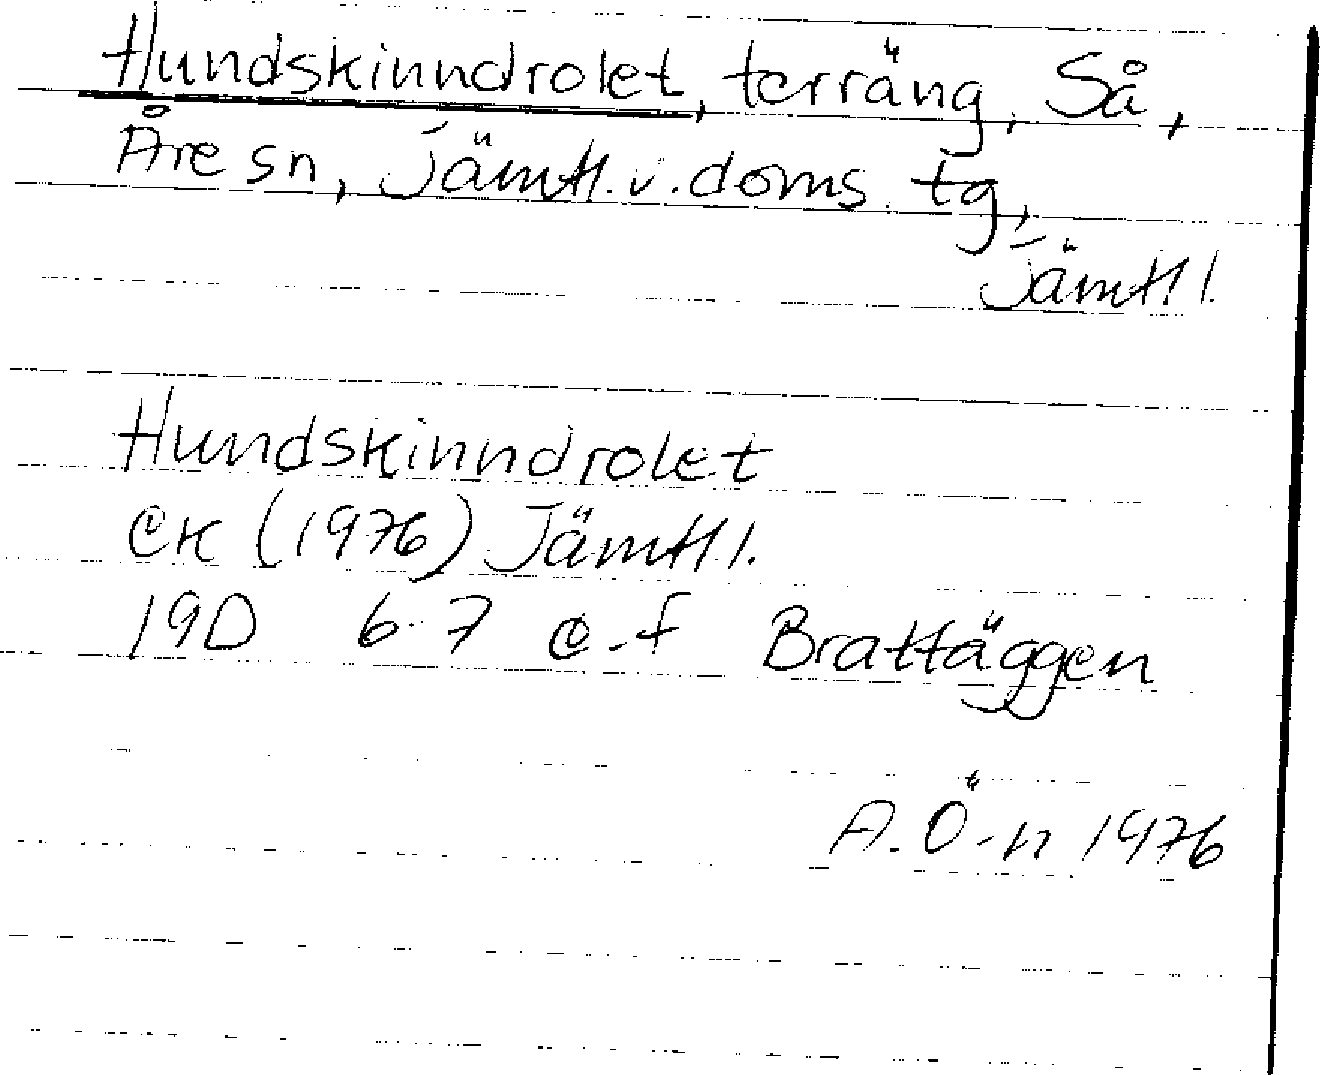 Hundskinndrolet, terräng, Så,
Åre sn, Jämtl. v. doms. tg,
Jämtl l.
Hundskinndrolet
EK (1976) Jämtl l.
19D 6-7 e-f Brattäggen
A. Ö-n 1976